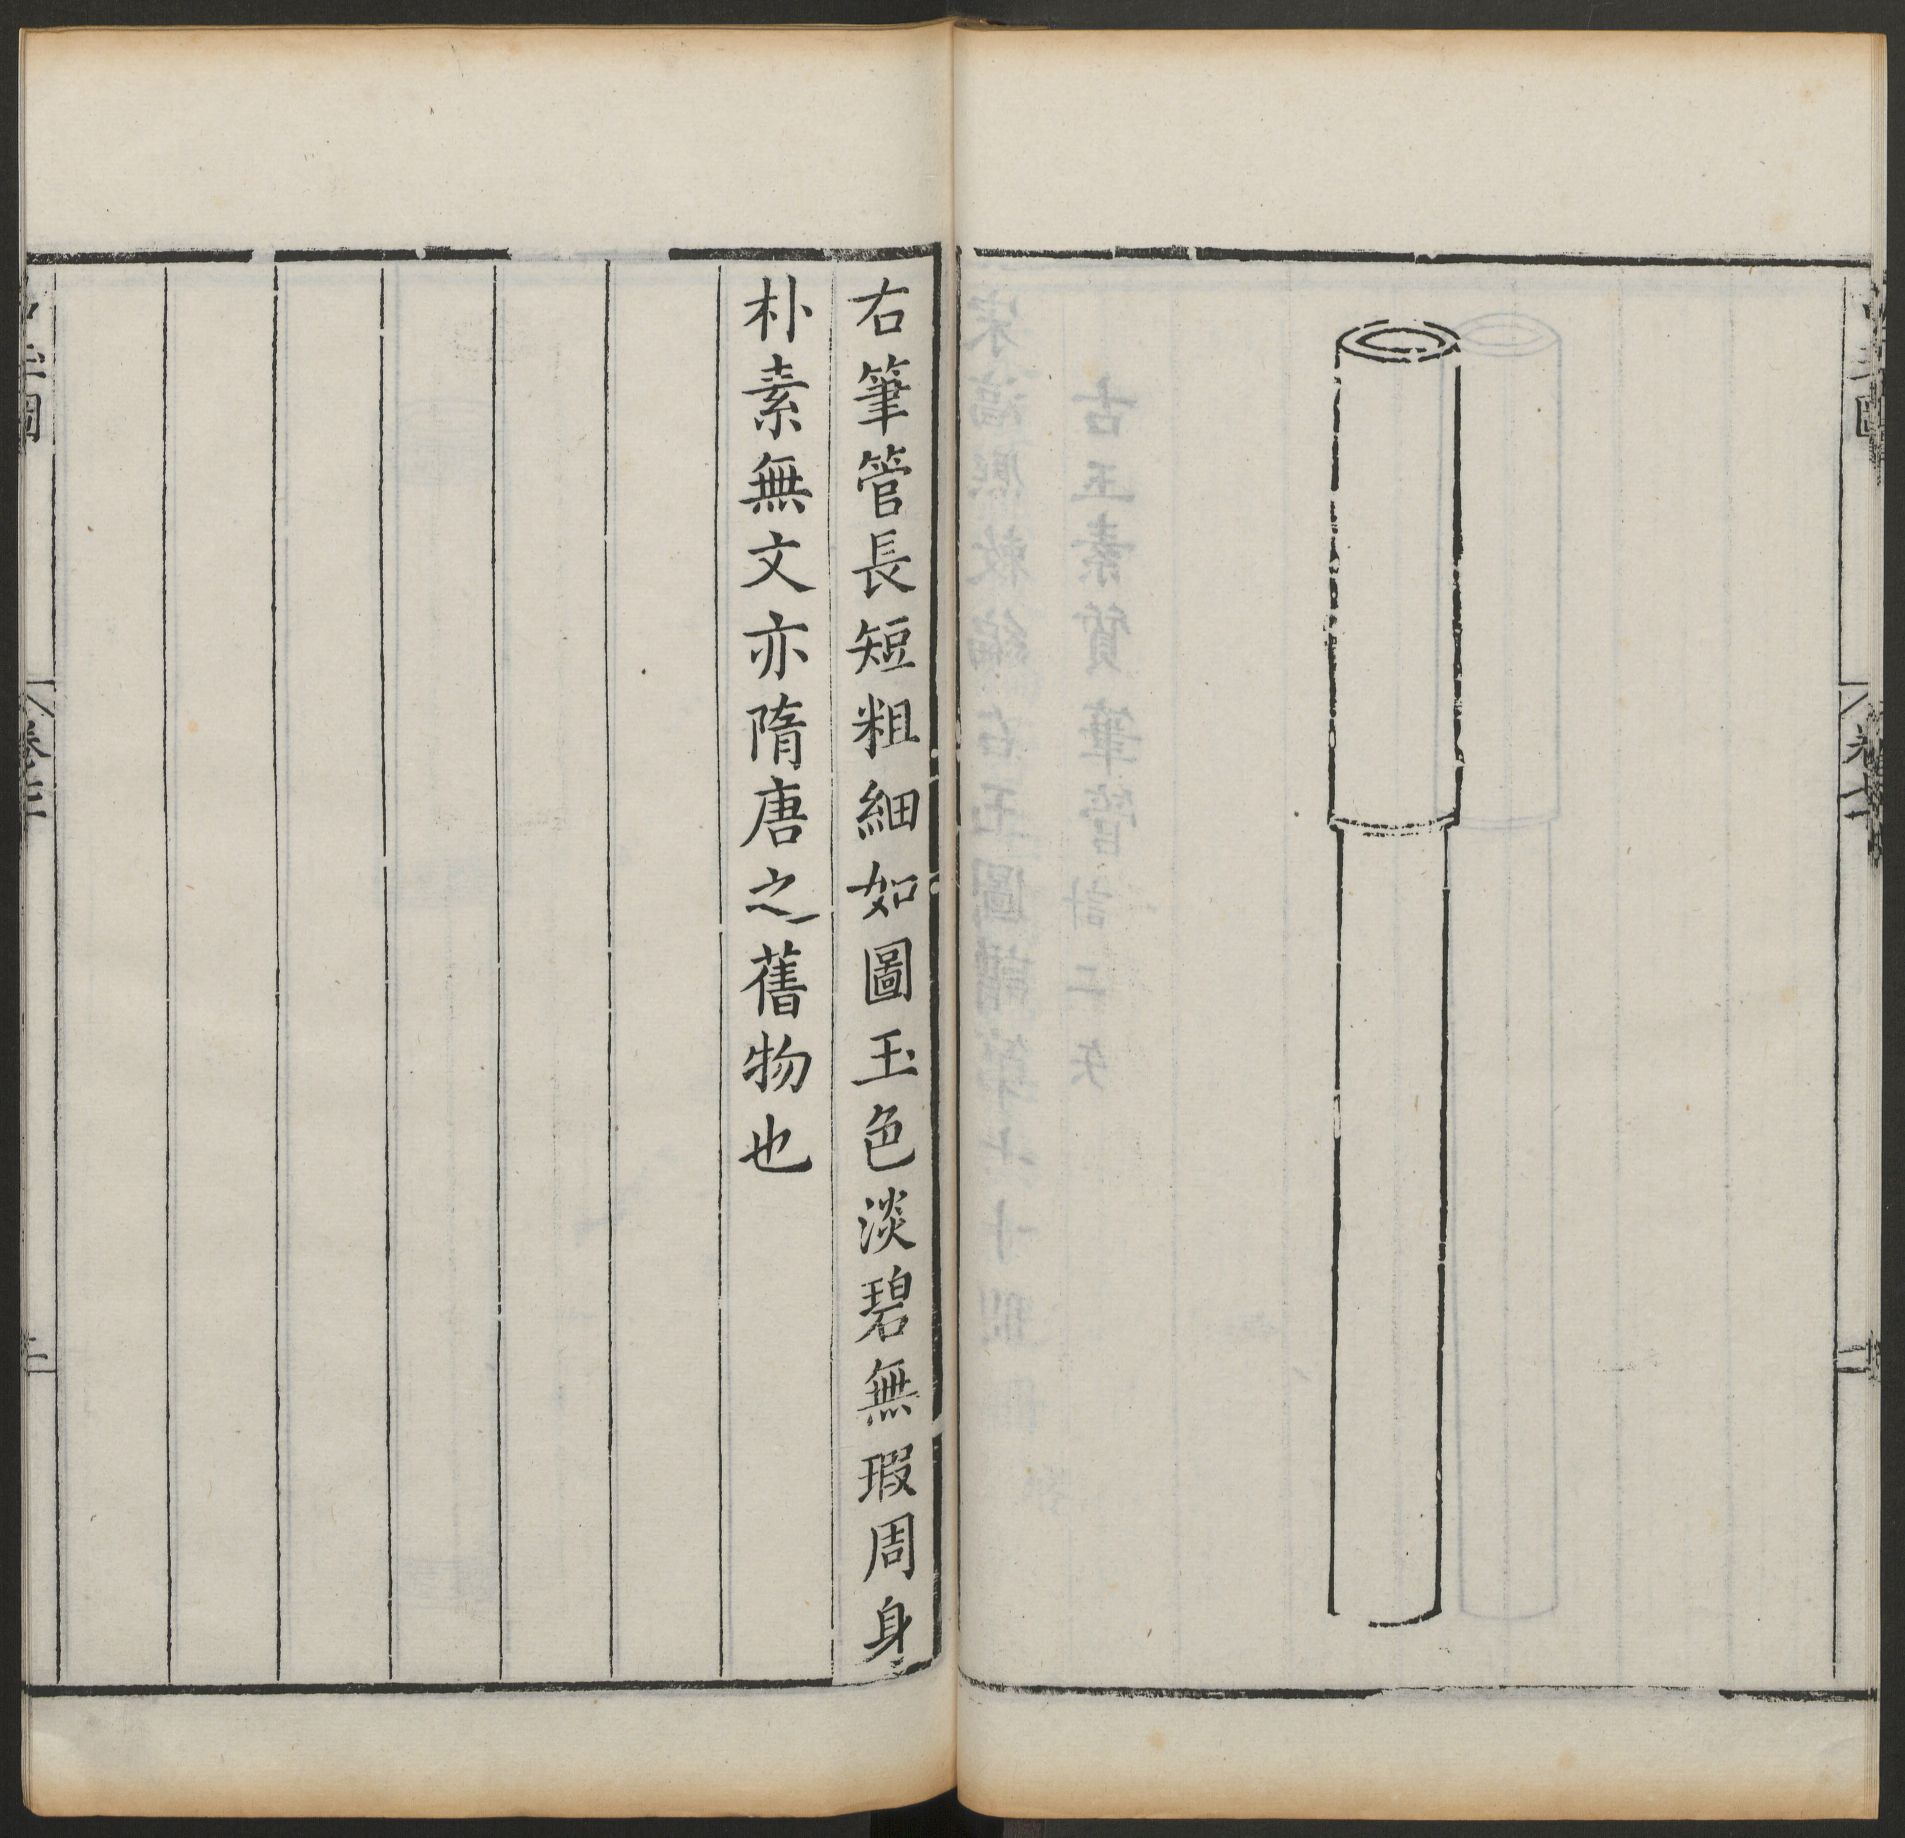 右筆管長短粗細如圖玉色淡碧無瑕周身
朴素無文亦隋唐之舊物也